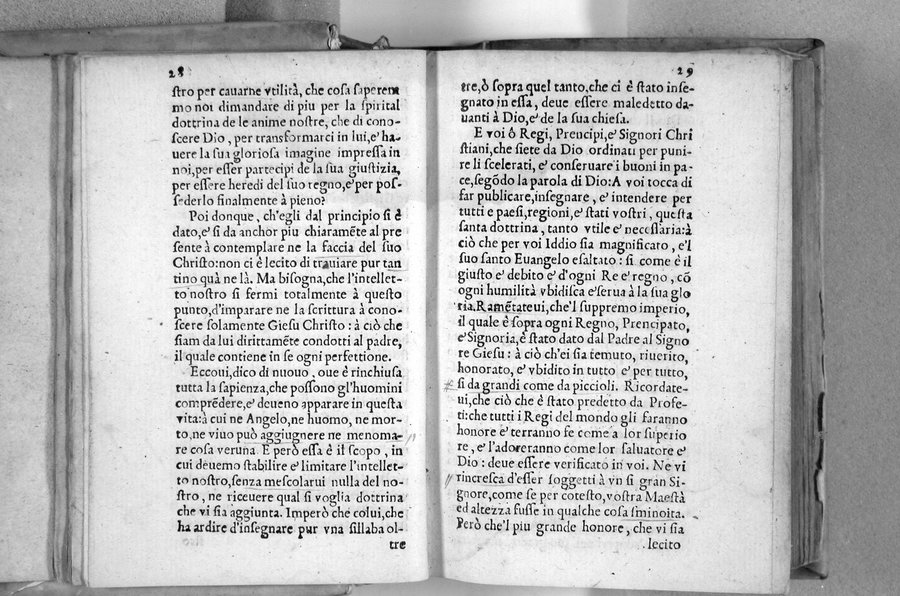 28
stro per cauarne vtilità, che cosa saperem
mo noi dimandare di piu per la spirital
dottrina de le anime nostre, che di cono-
scere Dio, per transformarci in lui, e' ha-
uere la sua gloriosa imagine impressa in
noi, per esser partecipi de la sua giustizia,
per essere heredi del suo regno, e' per pos-
sederlo finalmente à pieno?
Poi donque, ch'egli dal principio si è
dato, e' si da anchor piu chiaramẽte al pre
sente à contemplare ne la faccia del suo
Christo: non ci è lecito di trauiare pur tan
tino quà ne là. Ma bisogna, che l'intellet-
to nostro si fermi totalmente à questo
punto, d'imparare ne la scrittura à cono-
scere solamente Giesu Christo: à ciò che
siam da lui dirittamẽte condotti al padre,
il quale contiene in se ogni perfettione.
Eccoui, dico di nuouo, oue è rinchiusa
tutta la sapienza, che possono gl'huomini
comprẽdere, e' deueno apparare in questa
vita: à cui ne Angelo, ne huomo, ne mor-
to, ne viuo può aggiugnere ne menoma-
re cosa veruna. E però essa è il scopo, in
cui deuemo stabilire e' limitare l'intellet-
to nostro, senza mescolarui nulla del no-
stro, ne riceuere qual si voglia dottrina
che vi sia aggiunta. Imperò che colui, che
ha ardire d'insegnare pur vna sillaba ol-
tre
29
tre, ò sopra quel tanto, che ci è stato inse-
gnato in essa, deue essere maledetto da-
uanti à Dio, e' de la sua chiesa.
E voi ô Regi, Prencipi, e' Signori Chri
stiani, che siete da Dio ordinati per puni-
re li scelerati, e' conseruare i buoni in pa-
ce, segõdo la parola di Dio: A voi tocca di
far publicare, insegnare, e' intendere per
tutti e paesi, regioni, e' stati vostri, questa
santa dottrina, tanto vtile e' necessaria: à
ciò che per voi Iddio sia magnificato, e'l
suo santo Euangelo esaltato: si come è il
giusto e' debito e' d'ogni Re e' regno, cõ
ogni humilità vbidisca e' serua à la sua glo
ria. Ramẽtateui, che'l suppremo imperio,
il quale è sopra ogni Regno, Prencipato,
e' Signoria, è stato dato dal Padre al Signo
re Giesu: à ciò ch'ei sia temuto, riuerito,
honorato, e' vbidito in tutto e' per tutto,
si da grandi come da piccioli. Ricordate-
ui, che ciò che è stato predetto da Profe-
ti: che tutti i Regi del mondo gli faranno
honore e' terranno fe come a lor superio
re, e' l'adoreranno come lor saluatore e'
Dio: deue essere verificato in voi. Ne vi
rincresca d'esser soggetti à vn si gran Si-
gnore, come se per cotesto, vostra Maestà
ed altezza fusse in qualche cosa sminoita.
Però che'l piu grande honore, che vi sia
lecito